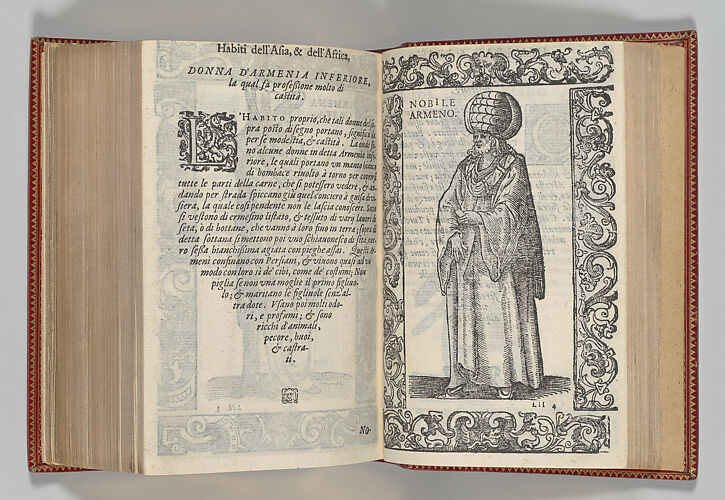 Habiti dell'Asia, & dell'Africa,
DONNA D'ARMENIA INFERIORE,
la qual fa professione molto di
castità.
L'HABITO proprio, che tali donne del so
pra posto disegno portano, significa
per se modestia, & castità. La onde si
no alcune donne in detta Armenia infe
riore, le quali portano un manto bianco
di bombace riuolto à torno per coprirsi
tutte le parti della carne, che si potessero vedere, &
dando per strada spiccano giù quel conciero à guisa di vi
siera, la quale così pendente non le lascia conoscere. Sotto
si vestono di ermesino listato, & tessuto di varij lauori di
seta, ò di bottane, che vanno à loro fino in terra; sopra
detta sottana si mettono poi vno schiauonesco di seta,
ro sessa bianchissima agiata con pieghe assai. Questi Ar
meni confinano con Persiani, & viuono quasi ad vn
modo con loro sì de' cibi, come de' costumi; Non
piglia se non vna moglie il primo figliuo-
lo; & maritano le figliuole senz'al-
tra dote. Vsano poi molti odo-
ri, e profumi; & sono
ricchi d'animali,
pecore, buoi,
& castra-
ti.
NO-
NOBILE
ARMENO.
Lll 4